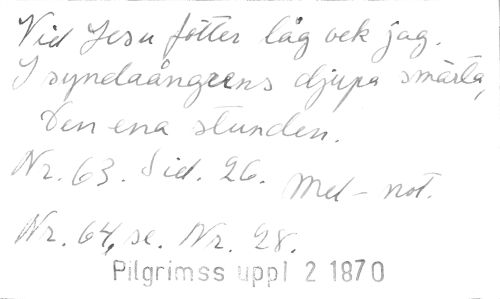 Vid Jesu fötter låg ock jag.
I syndaångerns djupa smärta,
Den ena stunden.
Nr. 63. Sid. 26. Med - not.
Nr. 64, se. Nr. 28.
Pilgrimss uppl 2 1870